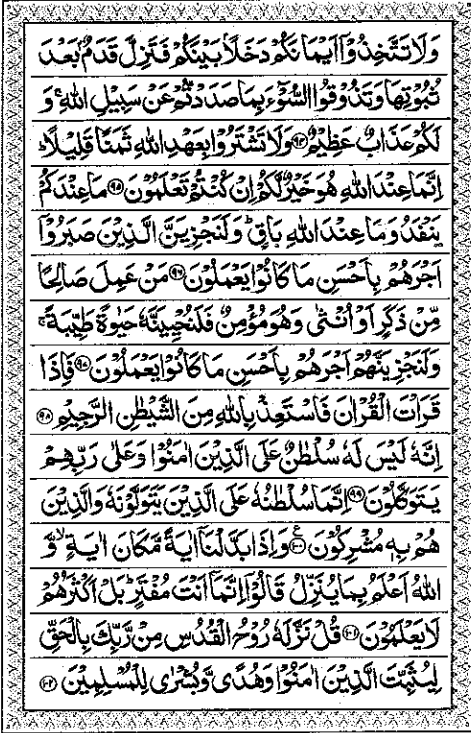 وَلَا تَتَّخِذُوْۤا اَيْمَانَكُمْ دَخَلًۢا بَيْنَكُمْ فَتَزِلَّ قَدَمٌۢ بَعْدَ
ثُبُوْتِهَا وَتَذُوْقُوا السُّوْٓءَ بِمَا صَدَدْتُّمْ عَنْ سَبِيْلِ اللّٰهِ ۚ وَ
لَكُمْ عَذَابٌ عَظِيْمٌ ۹۴ وَلَا تَشْتَرُوْا بِعَهْدِ اللّٰهِ ثَمَنًا قَلِيْلًا ؕ
اِنَّمَا عِنْدَ اللّٰهِ هُوَ خَيْرٌ لَّكُمْ اِنْ كُنْتُمْ تَعْلَمُوْنَ ۹۵ مَا عِنْدَكُمْ
يَنْفَدُ وَمَا عِنْدَ اللّٰهِ بَاقٍ ؕ وَلَنَجْزِيَنَّ الَّذِيْنَ صَبَرُوْۤا
اَجْرَهُمْ بِاَحْسَنِ مَا كَانُوْا يَعْمَلُوْنَ ۹۶ مَنْ عَمِلَ صَالِحًا
مِّنْ ذَكَرٍ اَوْ اُنْثٰى وَهُوَ مُؤْمِنٌ فَلَنُحْيِيَنَّهٗ حَيٰوةً طَيِّبَةً ۚ
وَلَنَجْزِيَنَّهُمْ اَجْرَهُمْ بِاَحْسَنِ مَا كَانُوْا يَعْمَلُوْنَ ۹۷ فَاِذَا
قَرَاْتَ الْقُرْاٰنَ فَاسْتَعِذْ بِاللّٰهِ مِنَ الشَّيْطٰنِ الرَّجِيْمِ ۹۸
اِنَّهٗ لَيْسَ لَهٗ سُلْطٰنٌ عَلَى الَّذِيْنَ اٰمَنُوْا وَعَلٰى رَبِّهِمْ
يَتَوَكَّلُوْنَ ۹۹ اِنَّمَا سُلْطٰنُهٗ عَلَى الَّذِيْنَ يَتَوَلَّوْنَهٗ وَالَّذِيْنَ
هُمْ بِهٖ مُشْرِكُوْنَ ۱۰۰ ع وَاِذَا بَدَّلْنَاۤ اٰيَةً مَّكَانَ اٰيَةٍ ۙ وَّ
اللّٰهُ اَعْلَمُ بِمَا يُنَزِّلُ قَالُوْۤا اِنَّمَاۤ اَنْتَ مُفْتَرٍ ؕ بَلْ اَكْثَرُهُمْ
لَا يَعْلَمُوْنَ ۱۰۱ قُلْ نَزَّلَهٗ رُوْحُ الْقُدُسِ مِنْ رَّبِّكَ بِالْحَقِّ
لِيُثَبِّتَ الَّذِيْنَ اٰمَنُوْا وَهُدًى وَّبُشْرٰى لِلْمُسْلِمِيْنَ ۱۰۲